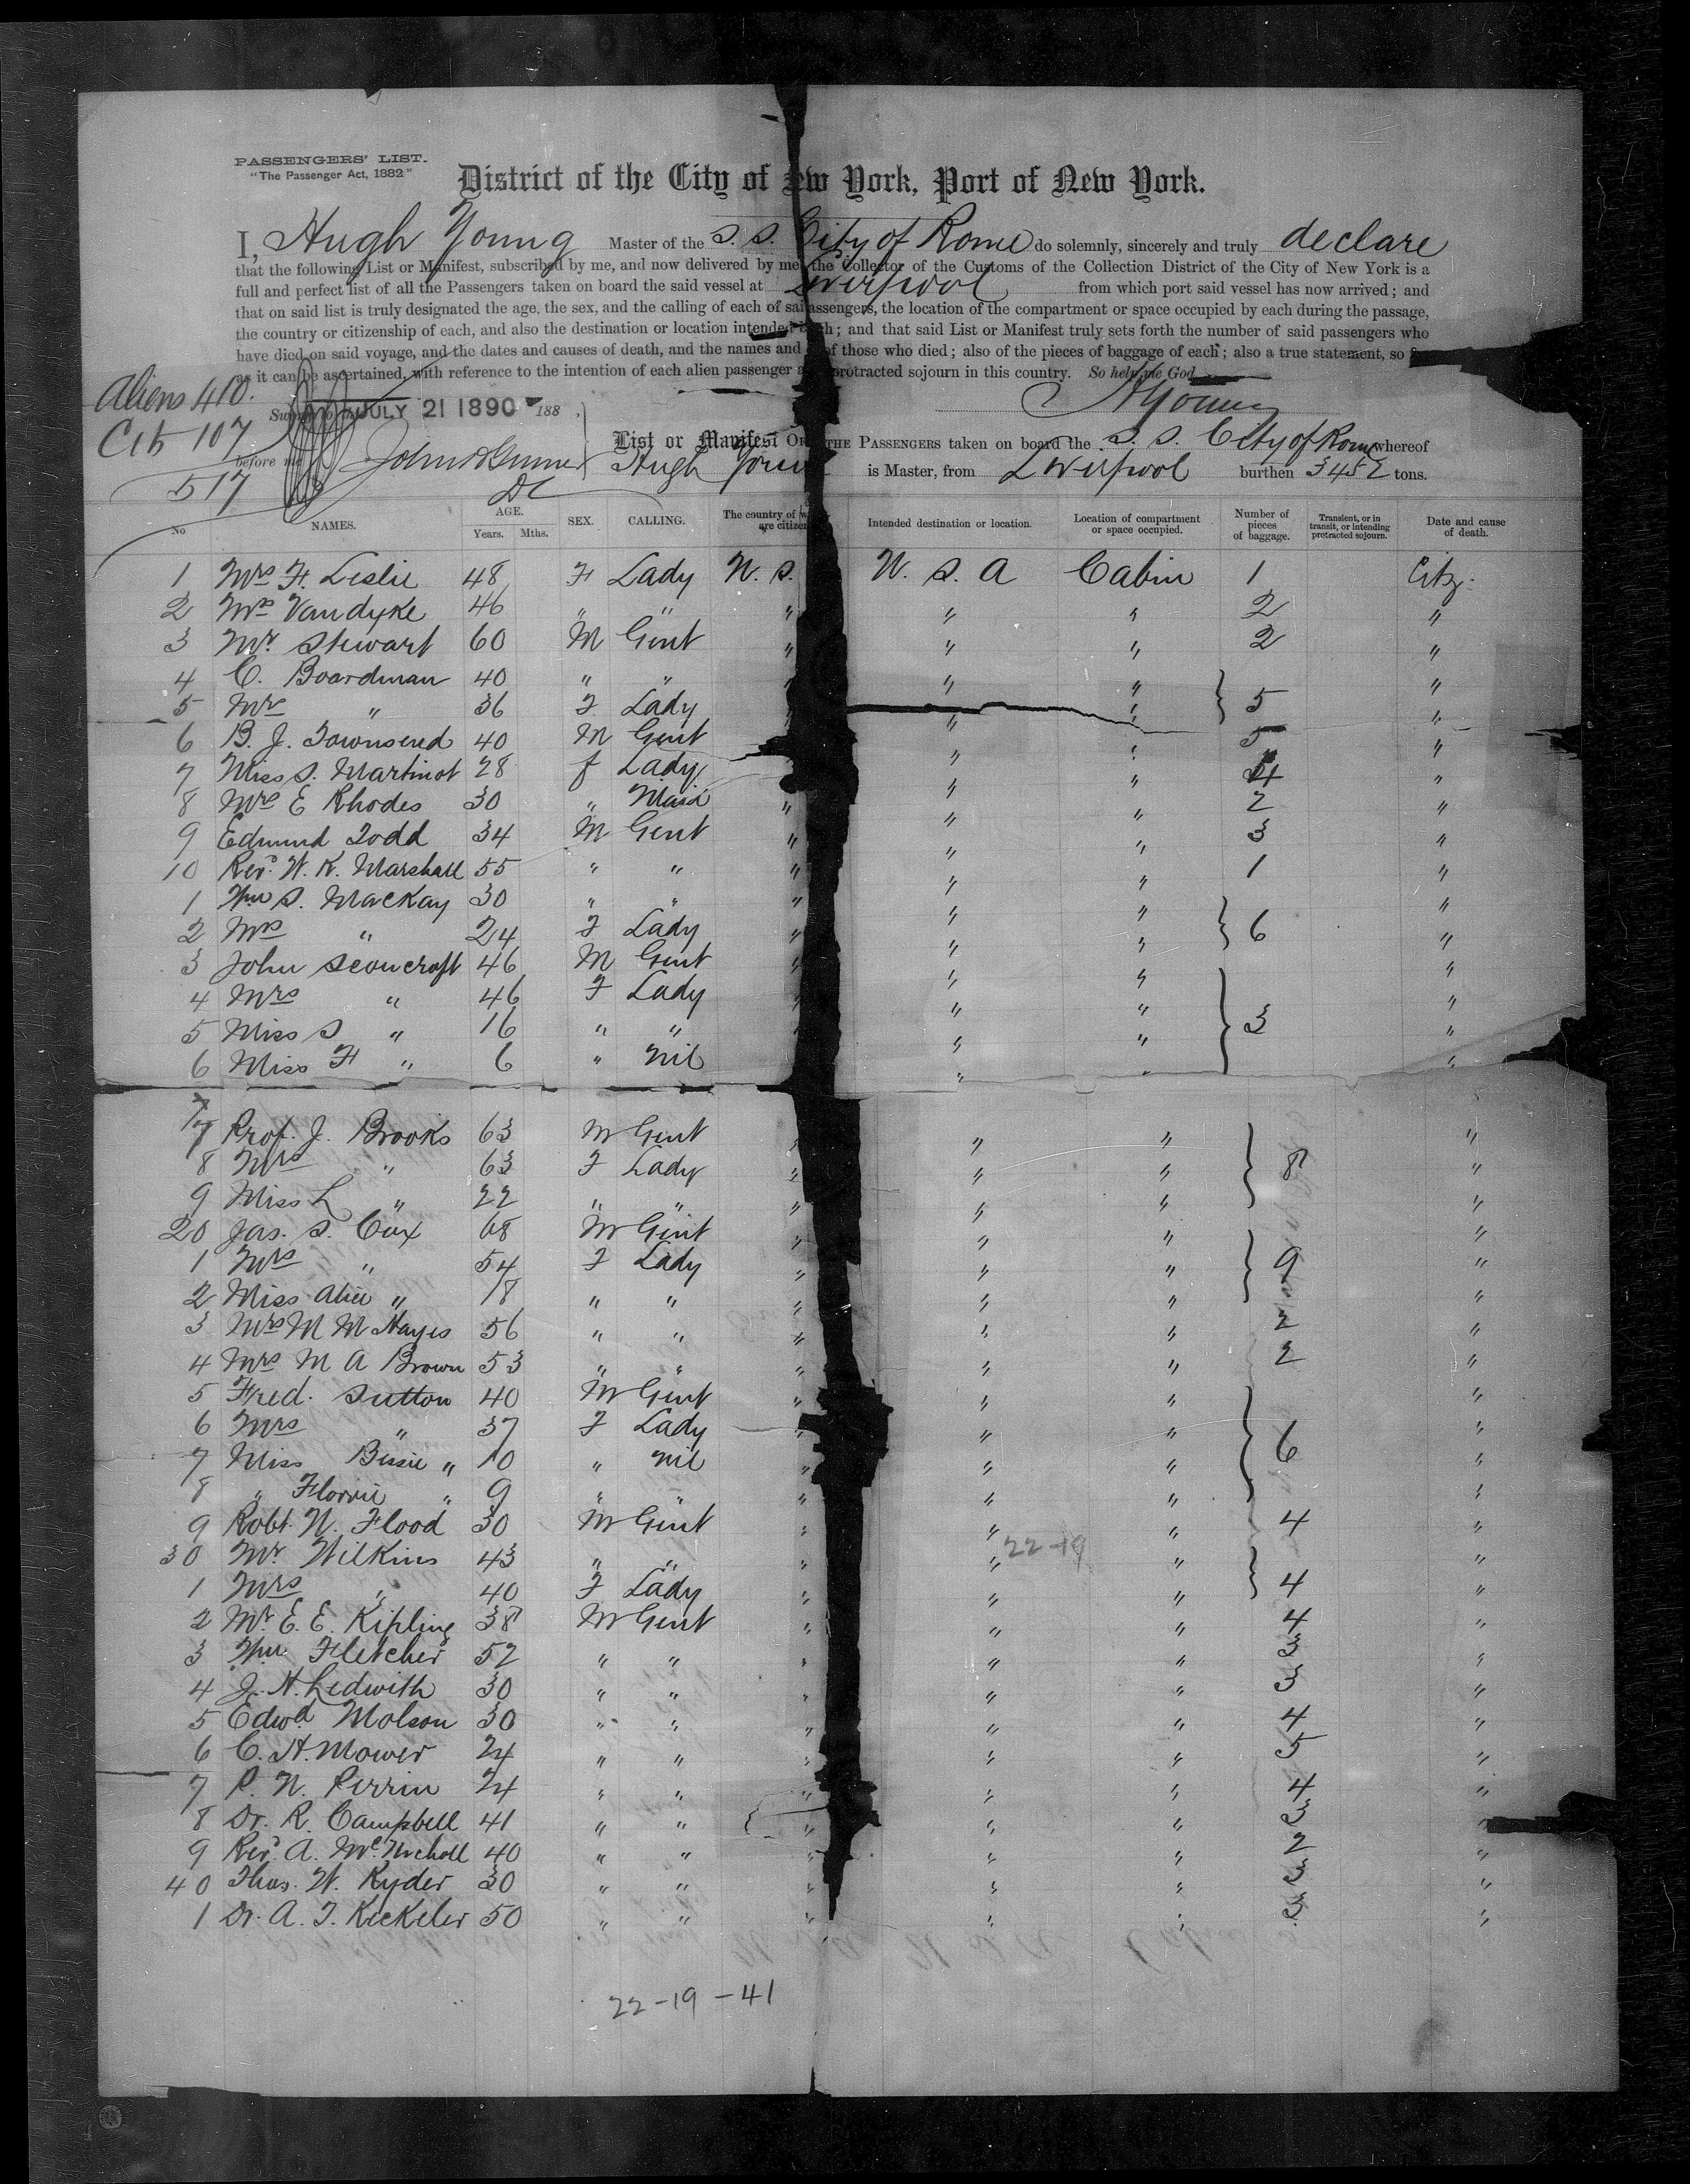 PASSENGERS' LIST.
"The Passenger Act, 1882"
District of the City of ew York, Port of New York.
I, Hugh Young Master of the S. S. City of Rome do solemnly, sincerely and truly declare
that the following List or Manifest, subscribed by me, and now delivered by me the Collector of the Customs of the Collection District of the City of New York is a
full and perfect list of all the Passengers taken on board the said vessel at Liverpool from which port said vessel has now arrived; and
that on said list is truly designated the age, the sex, and the calling of each of sai assengers, the location of the compartment or space occupied by each during the passage,
the country or citizenship of each, and also the destination or location intended ch; and that said List or Manifest truly sets forth the number of said passengers who
have died on said voyage, and the dates and causes of death, and the names and of those who died; also of the pieces of baggage of each; also a true statement, so
as it can be ascertained, with reference to the intention of each alien passenger a protracted sojourn in this country. So help me God
Aliens 410.
JULY 21 1890 188 HYoung
Cit 107
List or Manifest OF THE PASSENGERS taken on board the S. S. City of Rome whereof
before me Hugh Young is Master, from Liverpool burthen 3452 tons.
517
No NAMES. AGE. Years. Mths. SEX. CALLING. The country of w are citizen Intended destination or location. Location of compartment or space occupied. Number of pieces of baggage. Transient, or in transit, or intending protracted sojourn. Date and cause of death.
1 Mrs F. Leslie 48 F Lady U. S. U. S. A Cabin 1 Citz.
2 Mrs Vandyke 46 " " " " " 2 "
3 Mr. Stewart 60 M Gent " " " 2 "
4 C. Boardman 40 " " " " " "
5 Mrs " 36 F Lady " " " 5 "
6 B. J. Townsend 40 M Gent " " 5 "
7 Miss S. Martinot 28 f Lady " " 4 "
8 Mrs E Rhodes 30 " Maid " " " 2 "
9 Edmund Todd 34 M Gent " " " 3 "
10 Revd. W. K. Marshall 55 " " " " " 1 "
1 Wm S. Mackay 30 " " " " " "
2 Mrs " 24 F Lady " " " 6 "
3 John Scowcroft 46 M Gent " " " "
4 Mrs " 46 F Lady " " " "
5 Miss S " 16 " " " " " 3 "
6 Miss F " 6 " nil " " "
17 Prof. J. Brooks 63 M Gent " " " "
8 Mrs " 63 F Lady " " " 8 "
9 Miss L " 22 " " " " " "
20 Jas. S. Cox 68 M Gent " " " "
1 Mrs " 54 F Lady " " " 9 "
2 Miss Alice " 18 " " " " " "
3 Mrs M M Hayes 56 " " " " " 2 "
4 Mrs M A Brown 53 " " " " " 2 "
5 Fred. Sutton 40 M Gent " " " "
6 Mrs " 37 F Lady " " " "
7 Miss Bessie " 10 " nil " " " 6 "
8 " Florrie " 9 " " " " " "
9 Robt. N. Flood 30 M Gent " " " 4 "
22-19
30 Mr. Wilkins 43 " " " " " "
1 Mrs " 40 F Lady " " " 4 "
2 Mr. E. E. Kipling 38 M Gent " " " 4 "
3 Wm. Fletcher 52 " " " " " 3 "
4 J. H. Ledwith 30 " " " " " 3 "
5 Edwd Molson 30 " " " " " 4 "
6 C. H. Mower 24 " " " " " 5 "
7 P. N. Perrin 24 " " " " " 4 "
8 Dr. R. Campbell 41 " " " " " 3 "
9 Revd. A. McNicholl 40 " " " " " 2 "
40 Thos. W. Ryder 30 " " " " " 3 "
1 Dr. A. T. Keckeler 50 " " " " " 3 "
22-19-41